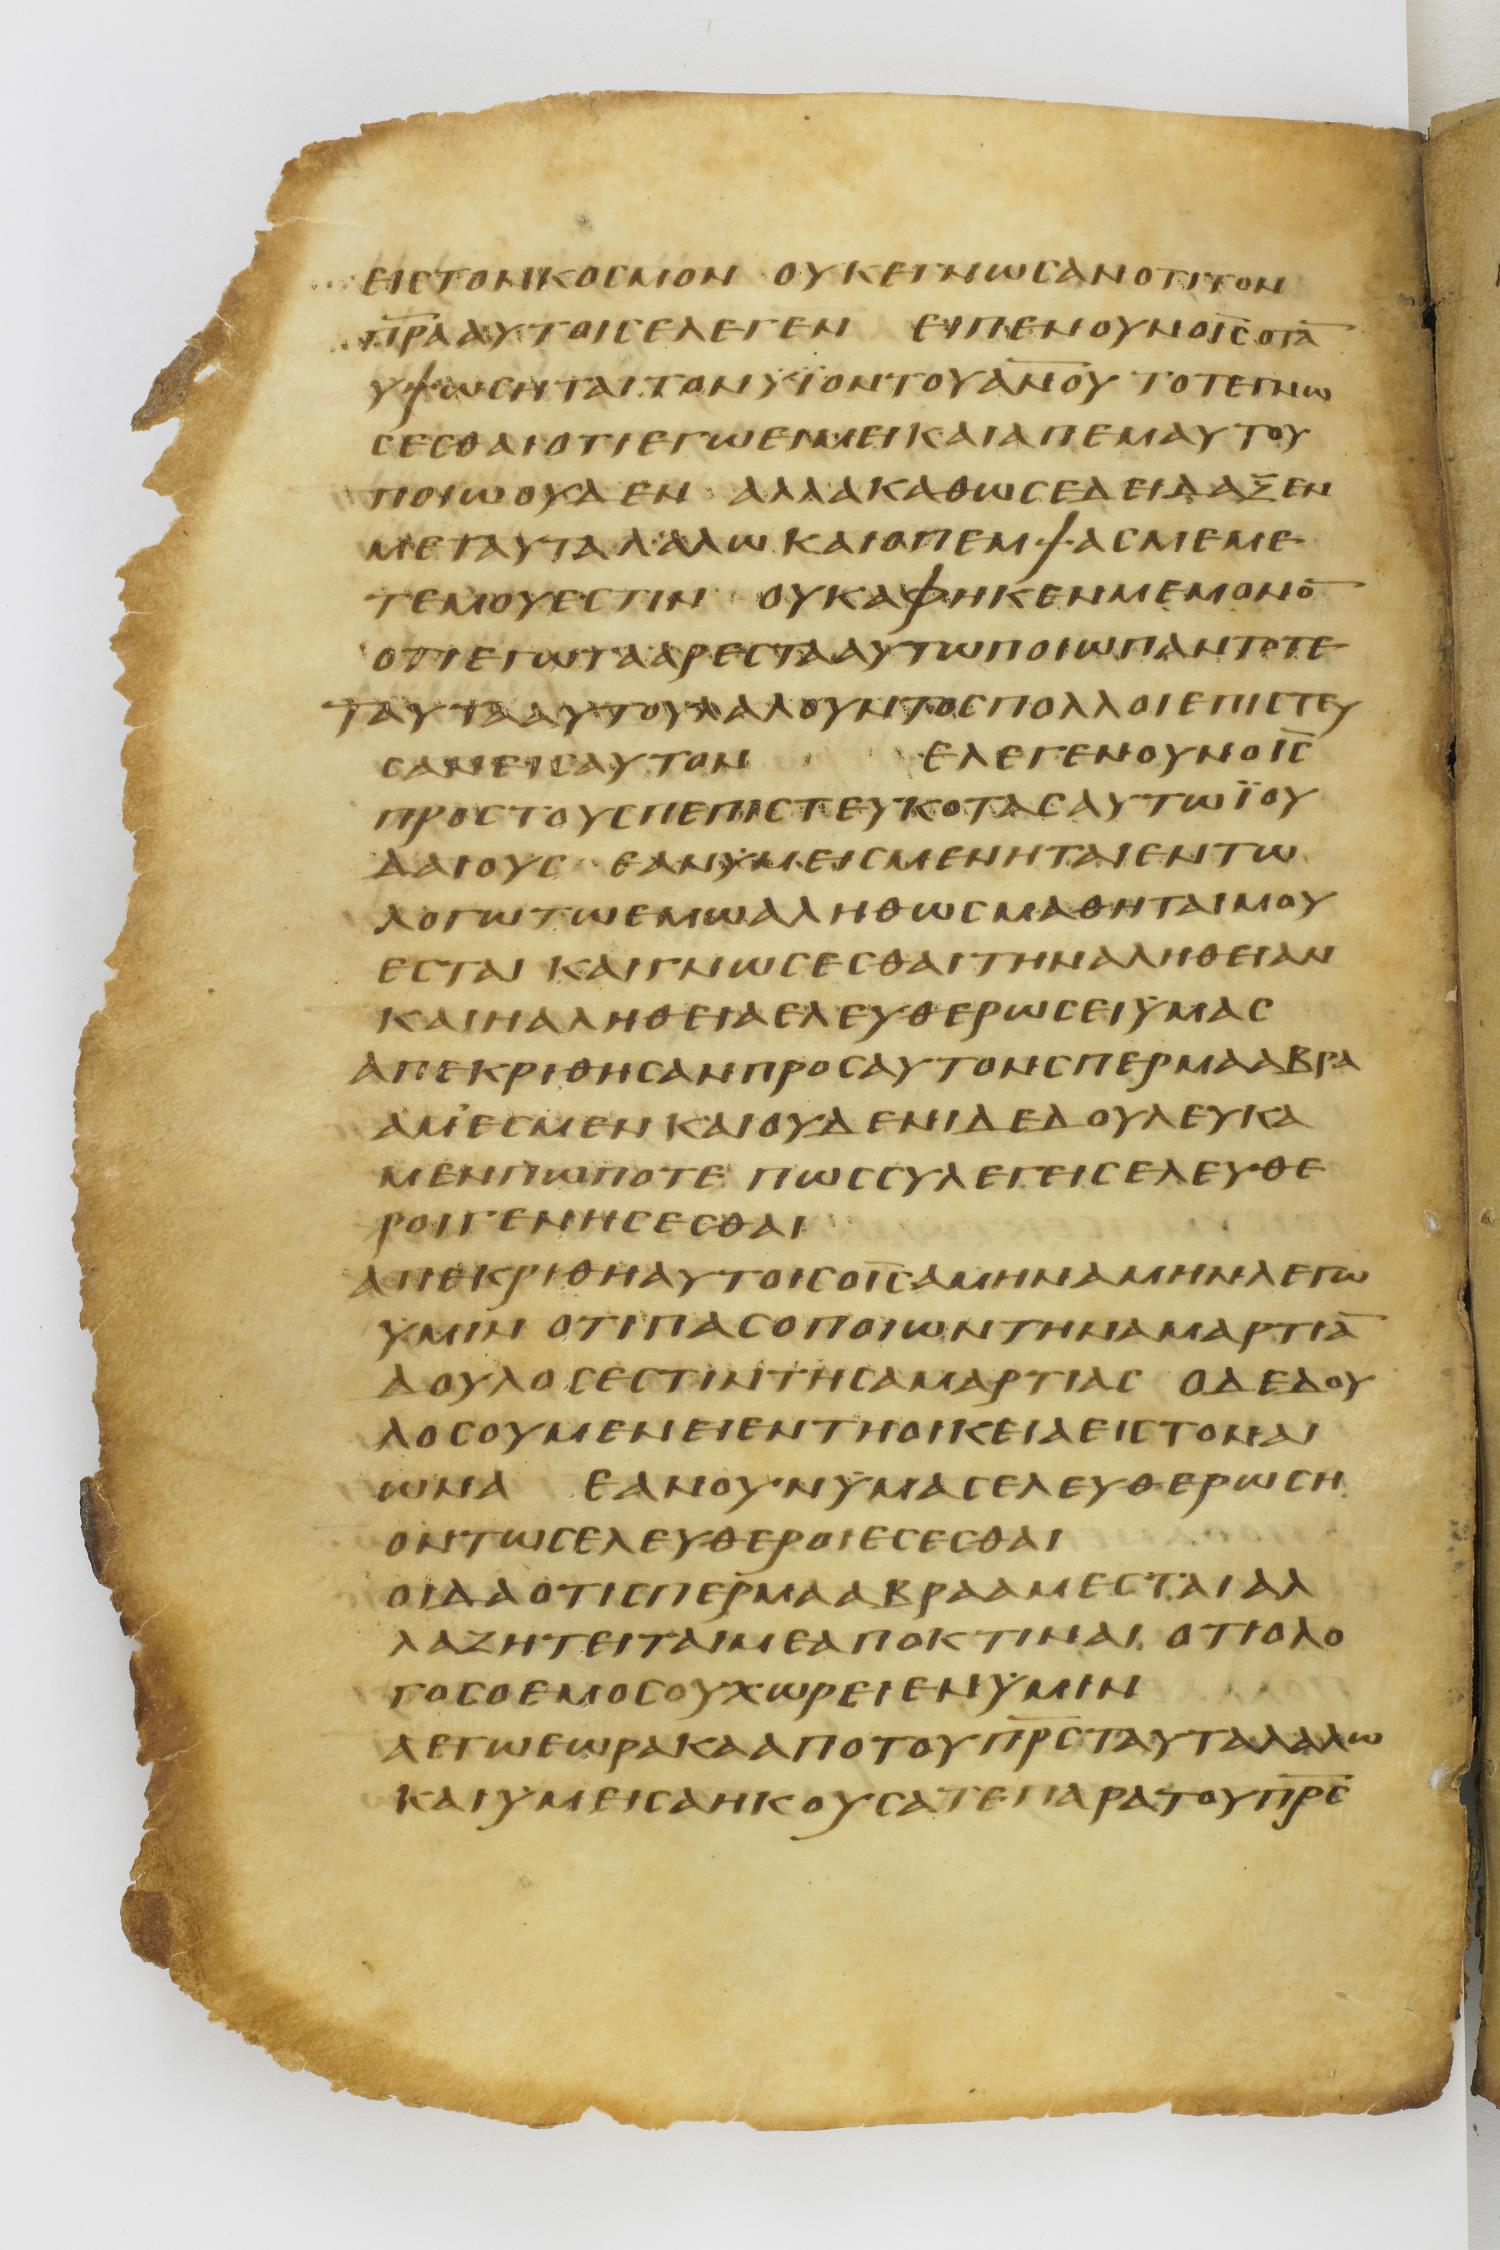 ΕΙϹΤΟΝΚΟϹΜΟΝ ΟΥΚΕΓΝΩϹΑΝΟΤΙΤΟΝ
Π̅Ρ̅Α̅ΑΥΤΟΙϹΕΛΕΓΕΝ ΕΙΠΕΝΟΥΝΟΙ̅Ϲ̅ΟΤΑ̅
ΥΨΩϹΗΤΑΙΤΟΝΫΪΟΝΤΟΥΑ̅Ν̅Ο̅Υ̅ ΤΟΤΕΓΝΩ
ϹΕϹΘΑΙΟΤΙΕΓΩΕΙΜΕΙΚΑΙΑΠΕΜΑΥΤΟΥ
ΠΟΙΩΟΥΔΕΝ ΑΛΛΑΚΑΘΩϹΕΔΕΙΔΑΞΕΝ
ΜΕΤΑΥΤΑΛΑΛΩΚΑΙΟΠΕΜΨΑϹΜΕΜΕ
ΤΕΜΟΥΕϹΤΙΝ ΟΥΚΑΦΗΚΕΝΜΕΜΟΝΟ̅
ΟΤΙΕΓΩΤΑΑΡΕϹΤΑΑΥΤΩΠΟΙΩΠΑΝΤΟΤΕ
ΤΑΥΤΑΑΥΤΟΥΛΑΛΟΥΝΤΟϹΠΟΛΛΟΙΕΠΙϹΤΕΥ
ϹΑΝΕΙϹΑΥΤΟΝ ΕΛΕΓΕΝΟΥΝΟΙ̅Ϲ̅
ΠΡΟϹΤΟΥϹΠΕΠΙϹΤΕΥΚΟΤΑϹΑΥΤΩΪΟΥ
ΔΑΙΟΥϹ ΕΑΝΫΜΕΙϹΜΕΝΗΤΑΙΕΝΤΩ
ΛΟΓΩΤΩΕΜΩΑΛΗΘΩϹΜΑΘΗΤΑΙΜΟΥ
ΕϹΤΑΙ ΚΑΙΓΝΩϹΕϹΘΑΙΤΗΝΑΛΗΘΕΙΑΝ
ΚΑΙΗΑΛΗΘΕΙΑΕΛΕΥΘΕΡΩϹΕΙΫΜΑϹ
ΑΠΕΚΡΙΘΗϹΑΝΠΡΟϹΑΥΤΟΝϹΠΕΡΜΑΑΒΡΑ
ΑΜ'ΕϹΜΕΝΚΑΙΟΥΔΕΝΙΔΕΔΟΥΛΕΥΚΑ
ΜΕΝΠΩΠΟΤΕ ΠΩϹϹΥΛΕΓΕΙϹΕΛΕΥΘΕ
ΡΟΙΓΕΝΗϹΕϹΘΑΙ
ΑΠΕΚΡΙΘΗΑΥΤΟΙϹΟΙ̅Ϲ̅ΑΜΗΝΑΜΗΝΛΕΓΩ
ΫΜΙΝ ΟΤΙΠΑϹΟΠΟΙΩΝΤΗΝΑΜΑΡΤΙΑ̅
ΔΟΥΛΟϹΕϹΤΙΝΤΗϹΑΜΑΡΤΙΑϹ ΟΔΕΔΟΥ
ΛΟϹΟΥΜΕΝΕΙΕΝΤΗΟΙΚΕΙΑΕΙϹΤΟΝΑΙ
ΩΝΑ ΕΑΝΟΥΝΫΜΑϹΕΛΕΥΘΕΡΩϹΗ
ΟΝΤΩϹΕΛΕΥΘΕΡΟΙΕϹΕϹΘΑΙ
ΟΙΔΑΟΤΙϹΠΕΡΜΑΑΒΡΑΑΜΕϹΤΑΙΑΛ
ΛΑΖΗΤΕΙΤΑΙΜΕΑΠΟΚΤΙΝΑΙ ΟΤΙΟΛΟ
ΓΟϹΟΕΜΟϹΟΥΧΩΡΕΙΕΝΫΜΙΝ
ΑΕΓΩΕΩΡΑΚΑΑΠΟΤΟΥΠ̅Ρ̅Ϲ̅ΤΑΥΤΑΛΑΛΩ
ΚΑΙΫΜΕΙϹΑΗΚΟΥϹΑΤΕΠΑΡΑΤΟΥΠ̅Ρ̅Ϲ̅